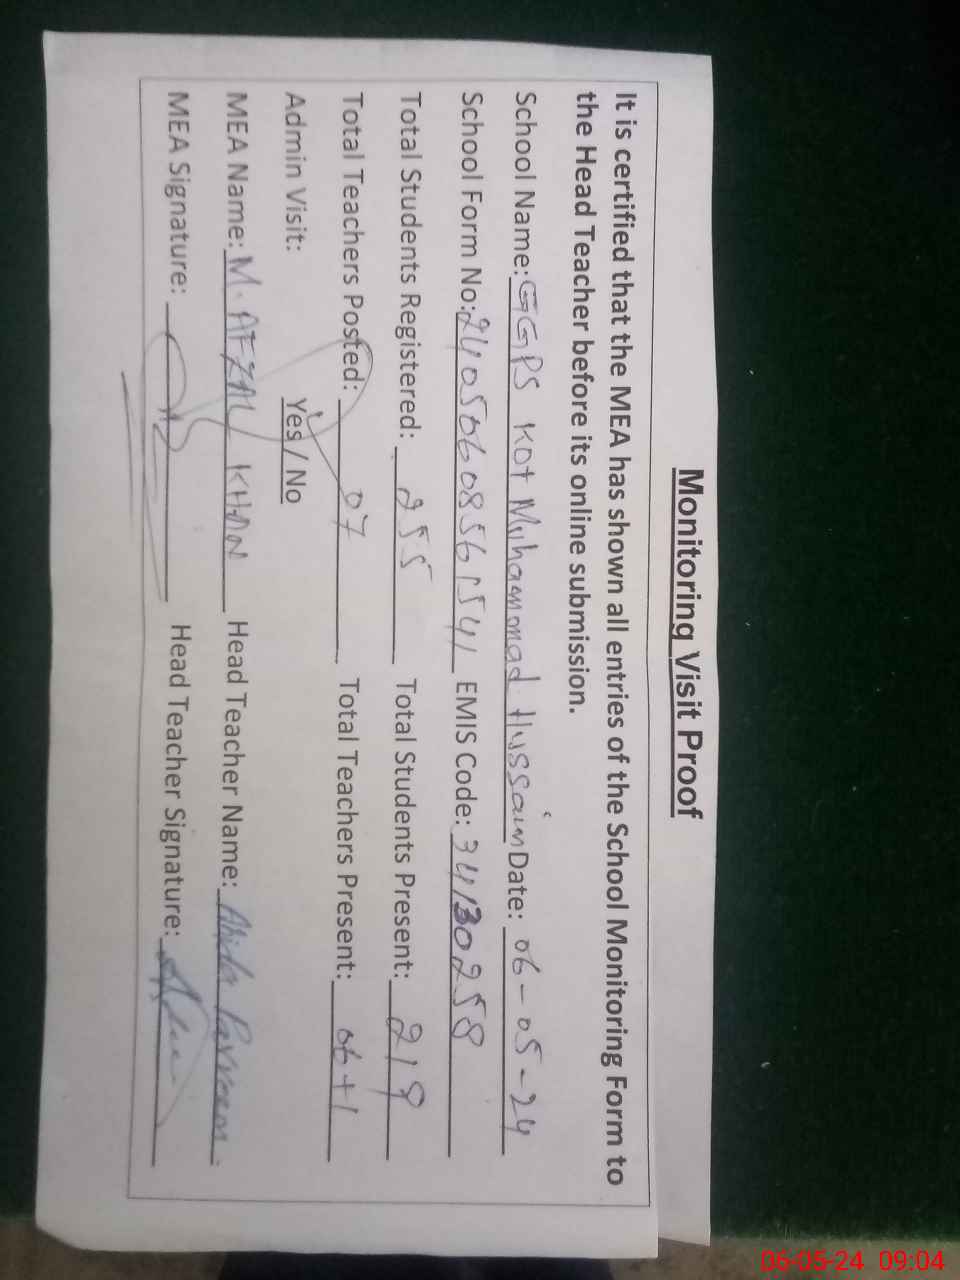 Monitoring Visit Proof
It is certified that the MEA has shown all entries of the School Monitoring Form to
the Head Teacher before its online submission.
School Name: GGPS Kot Muhammad Hussain Date: 06-05-24
School Form No: 24050608561541 EMIS Code: 34130258
Total Students Registered: 255 Total Students Present: 219
Total Teachers Posted: 07 Total Teachers Present: 06+1
Admin Visit: Yes / No
MEA Name: M. AFZAL KHAN Head Teacher Name: Abida Parveen
MEA Signature: Head Teacher Signature:
06-05-24 09:04